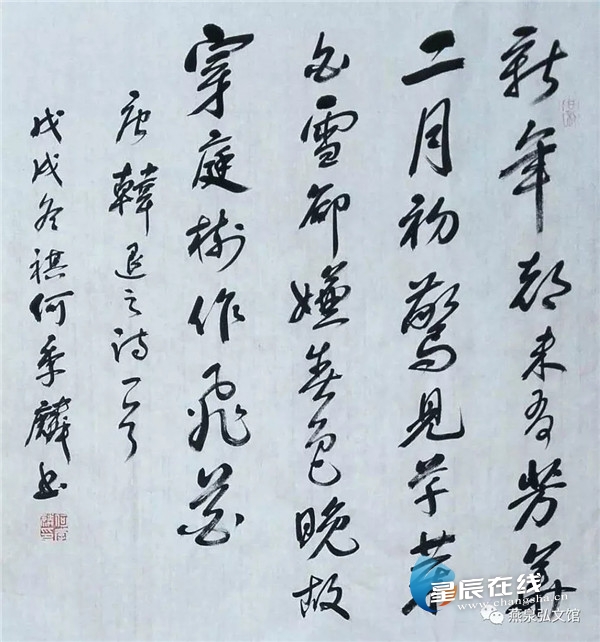 新年都未有芳華
二月初驚見草芽
白雪卻嫌春色晚故
穿庭樹作飛花
唐韓退之詩一首
戊戌冬祺何季麟書
星辰在线
www.changsha.cn
燕泉弘文馆